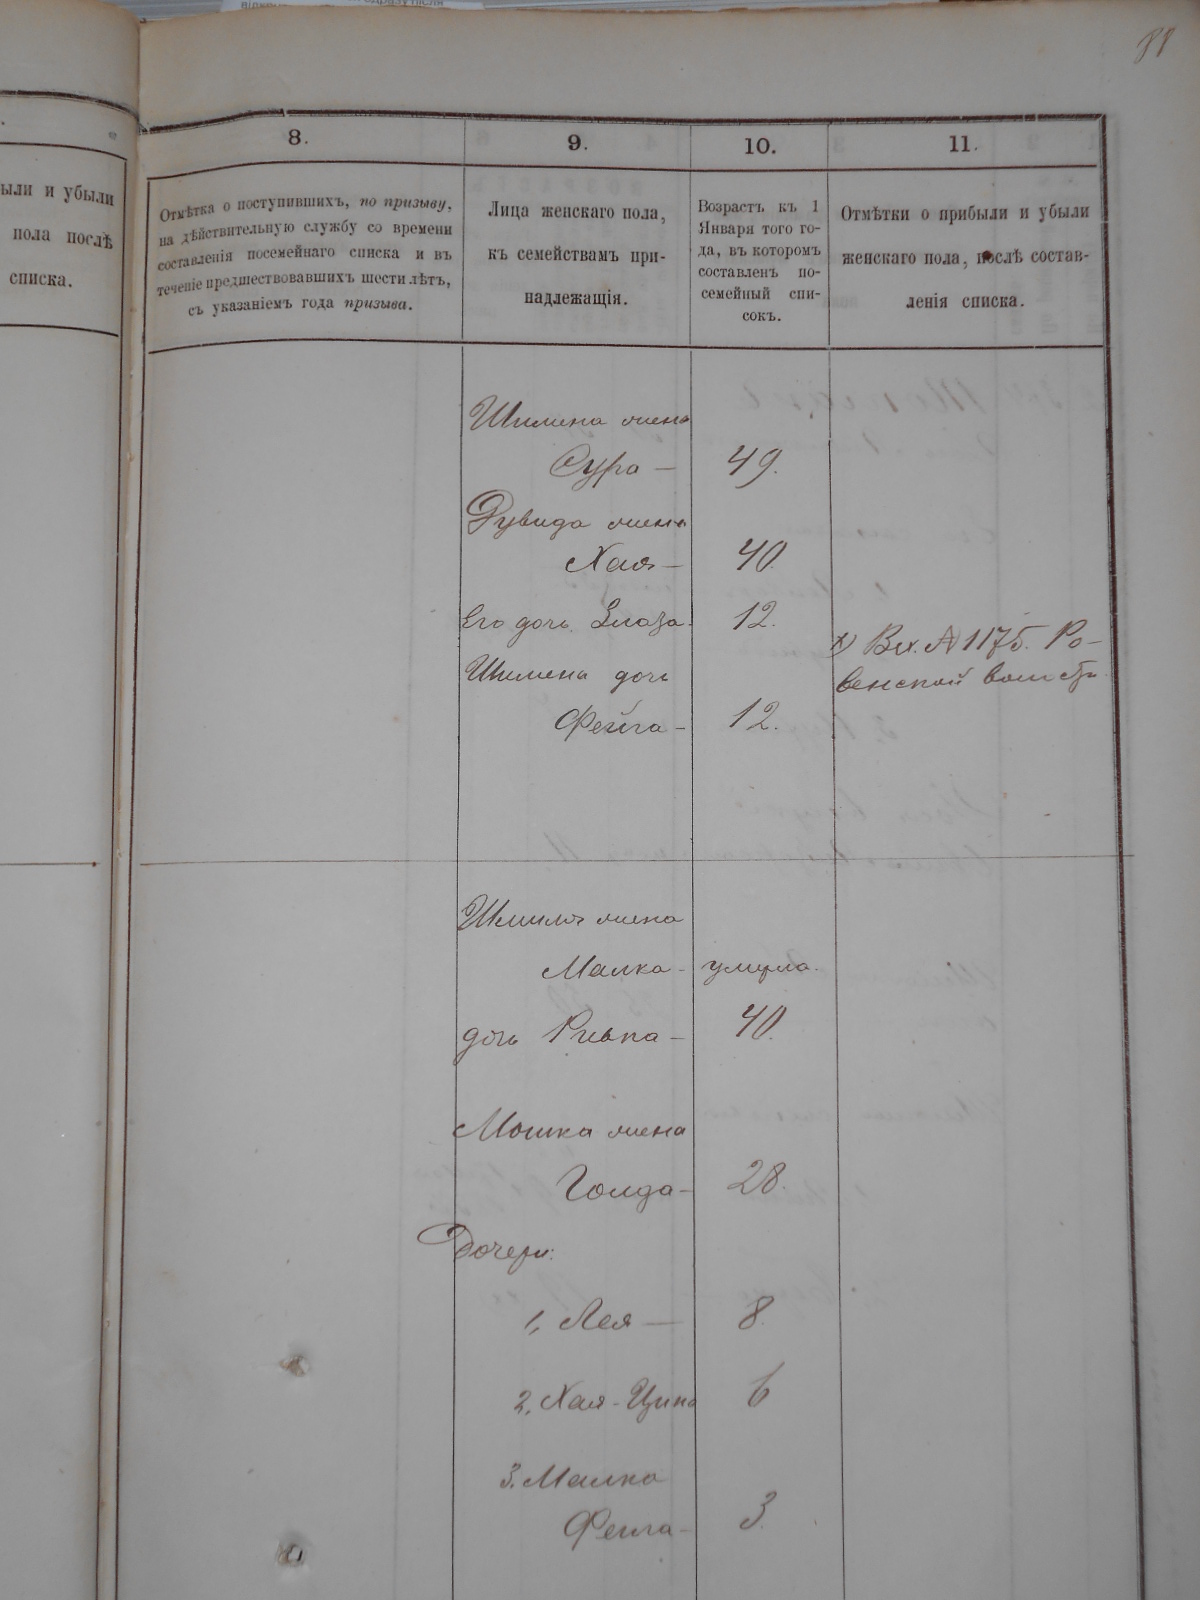 88
были и убыли
пола послѣ
списка.
8.
9.
10.
11.
Отмѣтка о поступившихъ, по призыву,
на дѣйствительную службу со времени
составленія посемейнаго списка и въ
теченіе предшествовавшихъ шести лѣтъ,
съ указаніемъ года призыва.
Лица женскаго пола,
къ семействамъ при-
надлежащія.
Возрастъ къ 1
Января того го-
да, въ которомъ
составленъ по-
семейный спи-
сокъ.
Отмѣтки о прибыли и убыли
женскаго пола, послѣ состав-
ленія списка.
Шимена жена
Сура — 49.
Дувида жена
Хая — 40.
Его дочь Злата. 12.
Шимена дочь
Фейга — 12.
х) Вх. № 1175. Ро-
венской
Шмиля жена
Малка - умерла.
дочь Ривка — 40.
Мошка жена
Голда — 28.
Дочери:
1, Лея — 8.
2, Хая-Ципа 6
3. Малка
Фейга — 3.